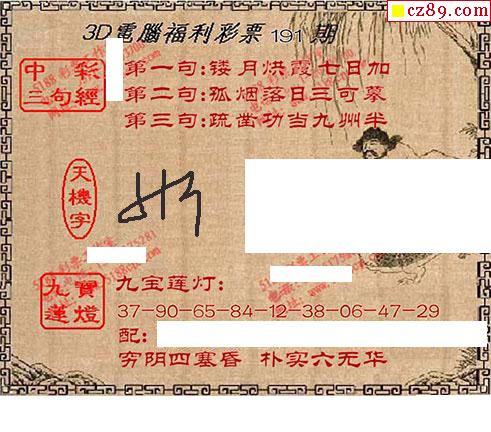 cz89.com
3D電腦福利彩票191期
中彩
三句經
第一句:镂月烘霞七日加
第二句:孤烟落日三可摹
第三句:疏凿功当九州半
天機字
九寶
蓮燈
九宝莲灯:
37-90-65-84-12-38-06-47-29
配:
穷阴四塞昏 朴实六无华